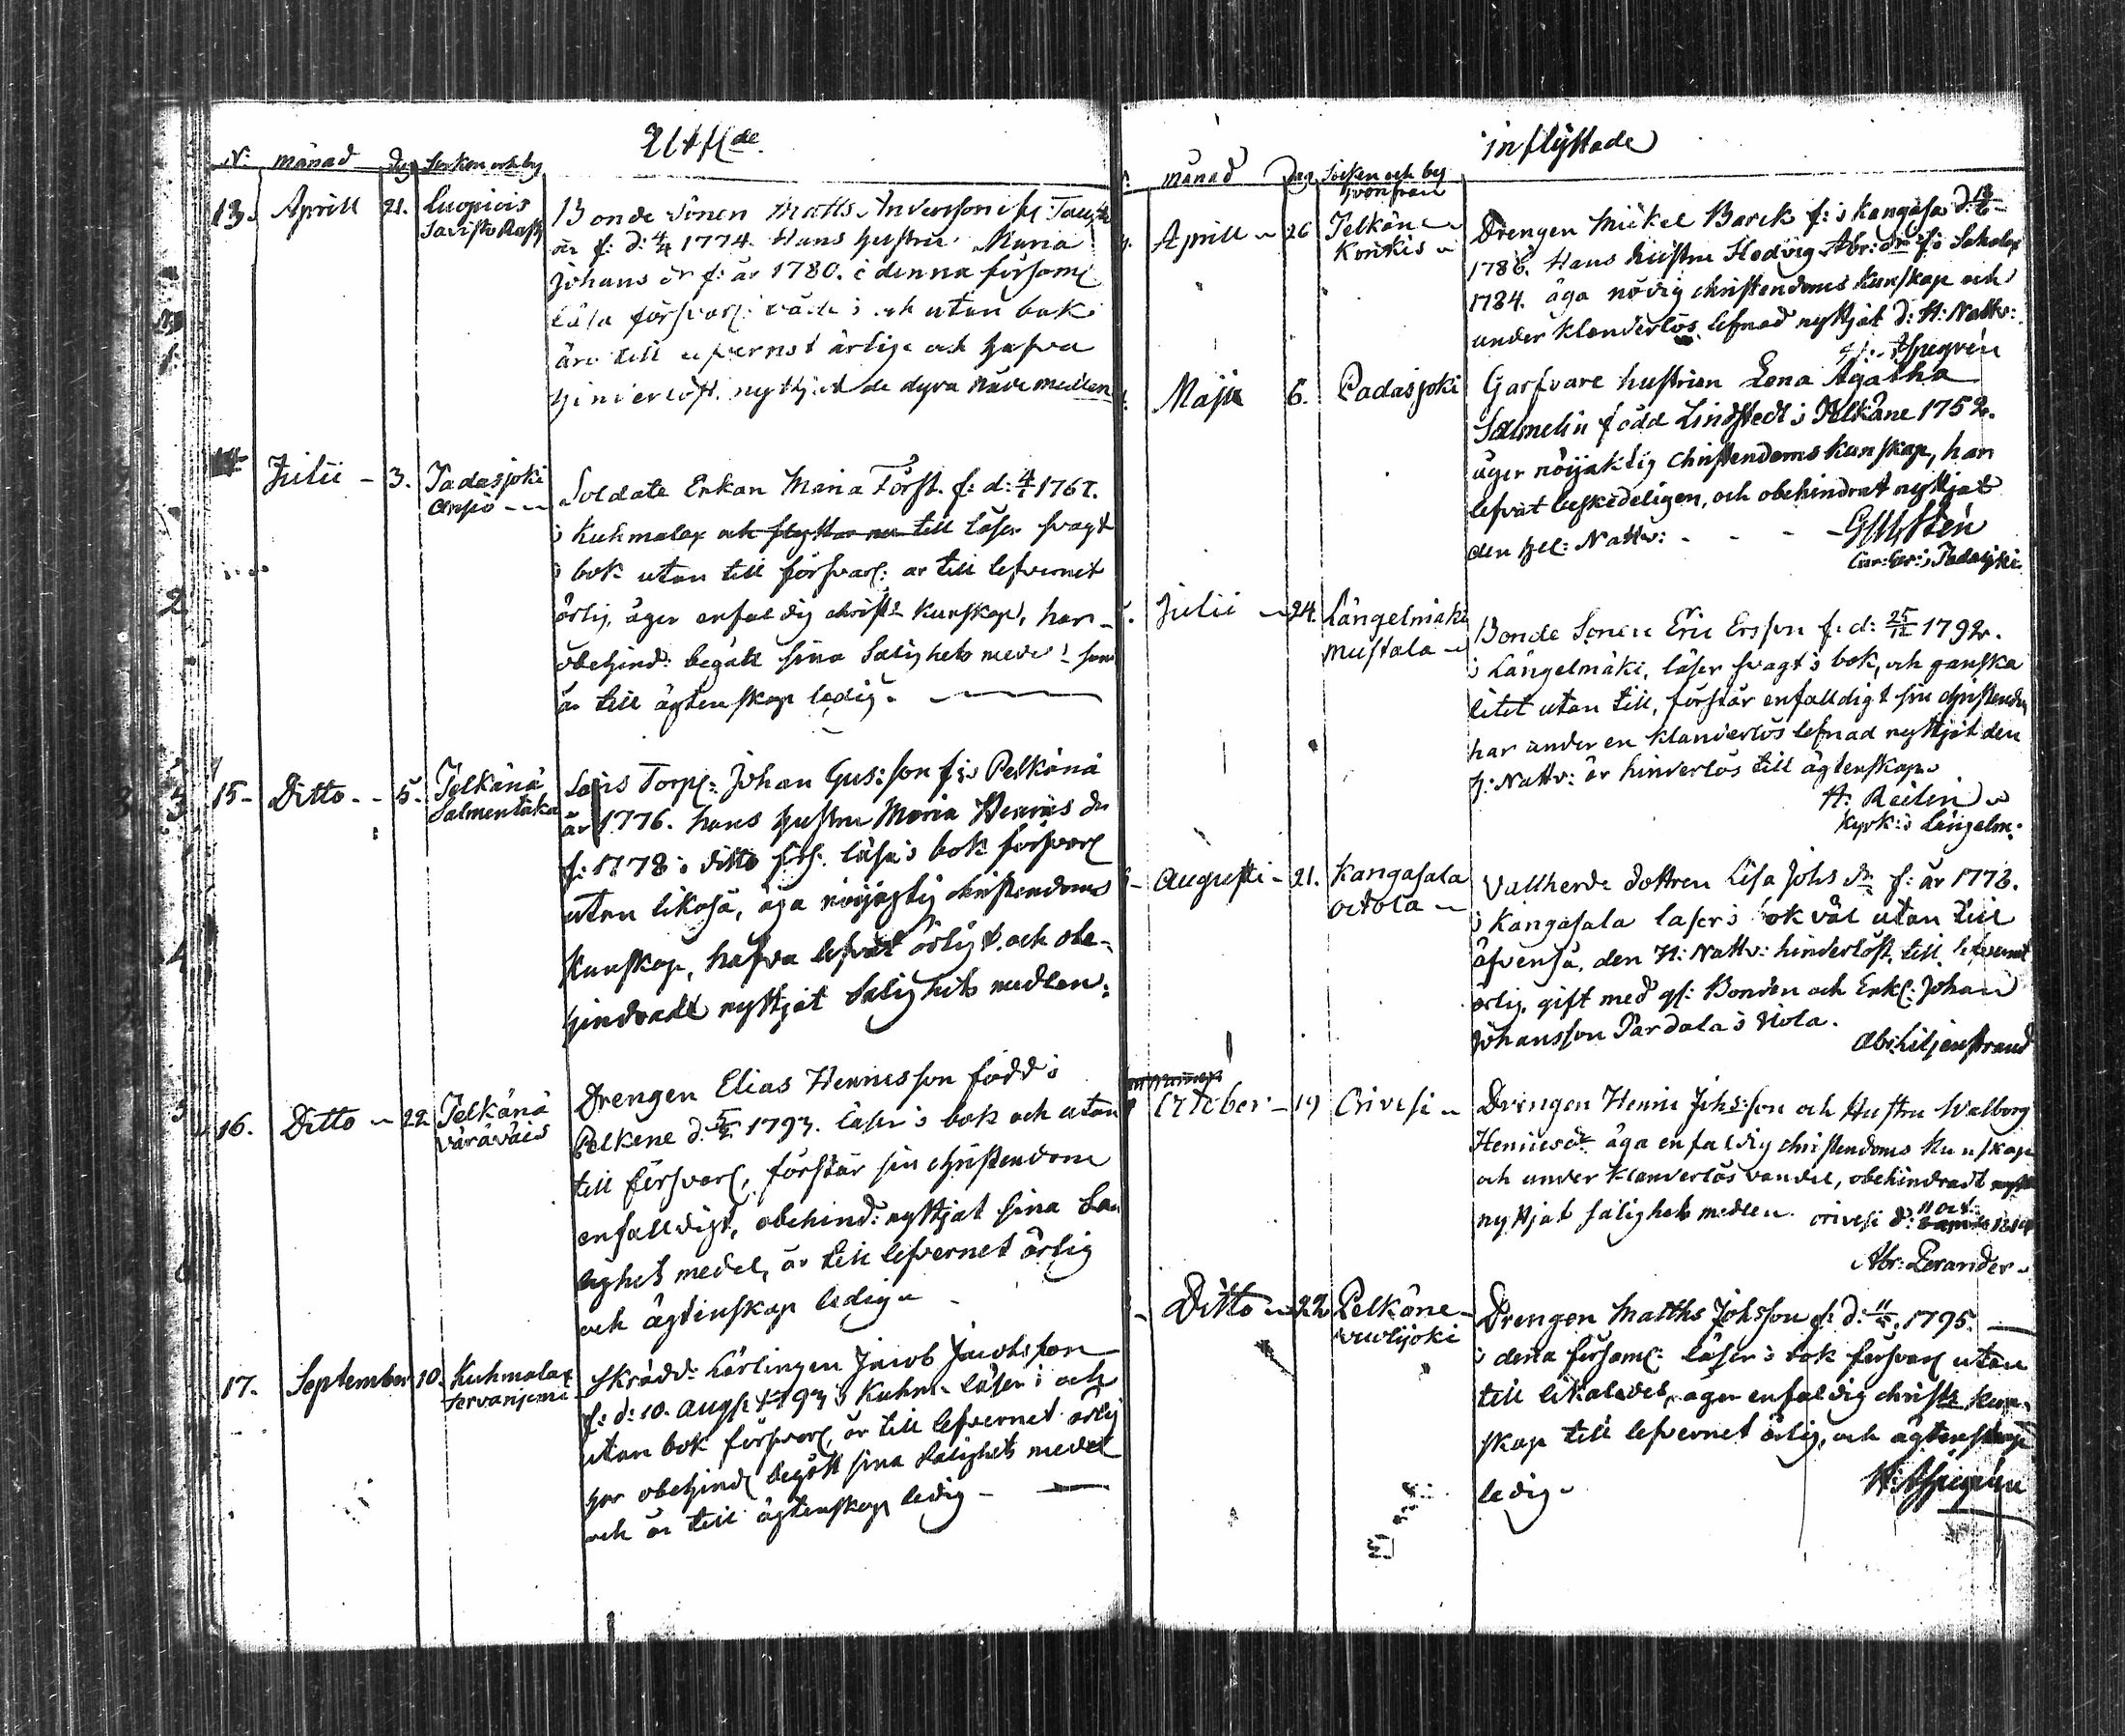 Utfl de
N: månad dag Socken och by
13. Aprill 21. Luopiois
Bonde Sonen Matts Andersson
är f: d: 4/4 1774. Hans hustru Maria
Johans dr f: år 1780. i denna församl
läsa försvarl: både i och utan bok
äro till lefvernet ärlige och hafva
hinderlöst nyttjat de dyra Nåde medlen
Julii - 3. Padasjoki
Arrsiö
Soldate Enkan Maria Först. f: d: 4/1 1767.
i Kuhmalax och flyttar nu till läser svagt
i bok utan till försvarl: är till lefvernet
ärlig, äger enfaldig christd: Kunskap, har
obehind: begått sina Salighets medel som
är till ägtenskap ledig.
15- Ditto - - 5. Pelkänä
Salmentaka
Torp: Johan Gus:son f: i Pelkänä
år 1776. hans hustru Maria Henriks dr
f: 1778 i ditto förs. läsa i bok försvarl
utan likaså, äga nöjagtig christendoms
Kunskap, hafva lefvat ärligt. och obe-
hindradt nyttjat Salighets medlen:
16. Ditto - 22 Pelkänä
Drengen Elias Henricsson född i
Pelkene d: 5/2 1793. läser i bok och utan
till försvarl, förstår sin christendom
enfalldigt, obehind: nyttjat sina Sa-
lighets medel, är till lefvernet ärlig
och ägtenskap ledig
17. September 10. Kuhmalax
tervaniemi
Skrädd: Lärlingen Jacob Jacobsson
f: d: 10. Augst 1793 i Kuhm- läser i och
utan bok försvarl, är till lefvernet ärlig
har obehind begått sina Salighets medel
och är till ägtenskap ledig -
inflyttade
månad Dag Socken och by
hvarifrån
Aprill - 26 Pelkäne
Konkis
Drengen Mickel Barck f: i Kangasa d: 13/6
1786. Hans hustru Hedvig Abr: dr f: i Sahalax
1784. äga nödig christendoms Kunskap och
under klanderlös lefnad nyttjat d: H: Nattv:
Aspegrén
Maji 6. Padasjoki
Garfvare hustrun Lena Agatha
Salmelin född Lindstedt i Pelkäne 1752.
äger nöijaktig Christendoms Kunskap, har
lefvat beskedeligen, och obehindrat nyttjat
den hel: Nattv: - - -
i Padasjoki
Julii - 24. Längelmäki
Mustala
Bonde Sonen Eric Ersson f: d: 25/12 1792.
i Längelmäki, läser svagt i bok, och ganska
litet utan till, förstår enfalldigt sin christendm
har under en klanderlös lefnad nyttjat den
h: Nattv: är hinderlös till ägtenskap.
H: Reilin
Kyrk: i Längelm:
Augusti - 21. Kangasala
Vallherde dottren Lisa Johs dr f: år 1773.
i Kangasala läser i bok väl utan till
äfvenså, den H: Nattv: hinderlöst, till lefvernet
ärlig, gift med gl: Bonden och Enkl: Johan
Johansson Pardala i Viola.
Ab: Liljenstrand
October - 19 Orivesi
Drengen Henric Johs:son och Hustru Walborg
Henricsdr äga enfaldig christendoms Kunskap
och under klanderlös vandel, obehindradt
nyttjat salighets medlen. Orivesi d: 11 Oct:
Abr: Perander
Ditto - 22 Pelkäne
Drengen Matths Johsson f: d: 1795.
i dena församl: läser i bok försvarl utan
till likaledes, äger enfaldig christs Kun-
skap till lefvernet ärlig, och ägtenskap
ledig
H: Aspegrén